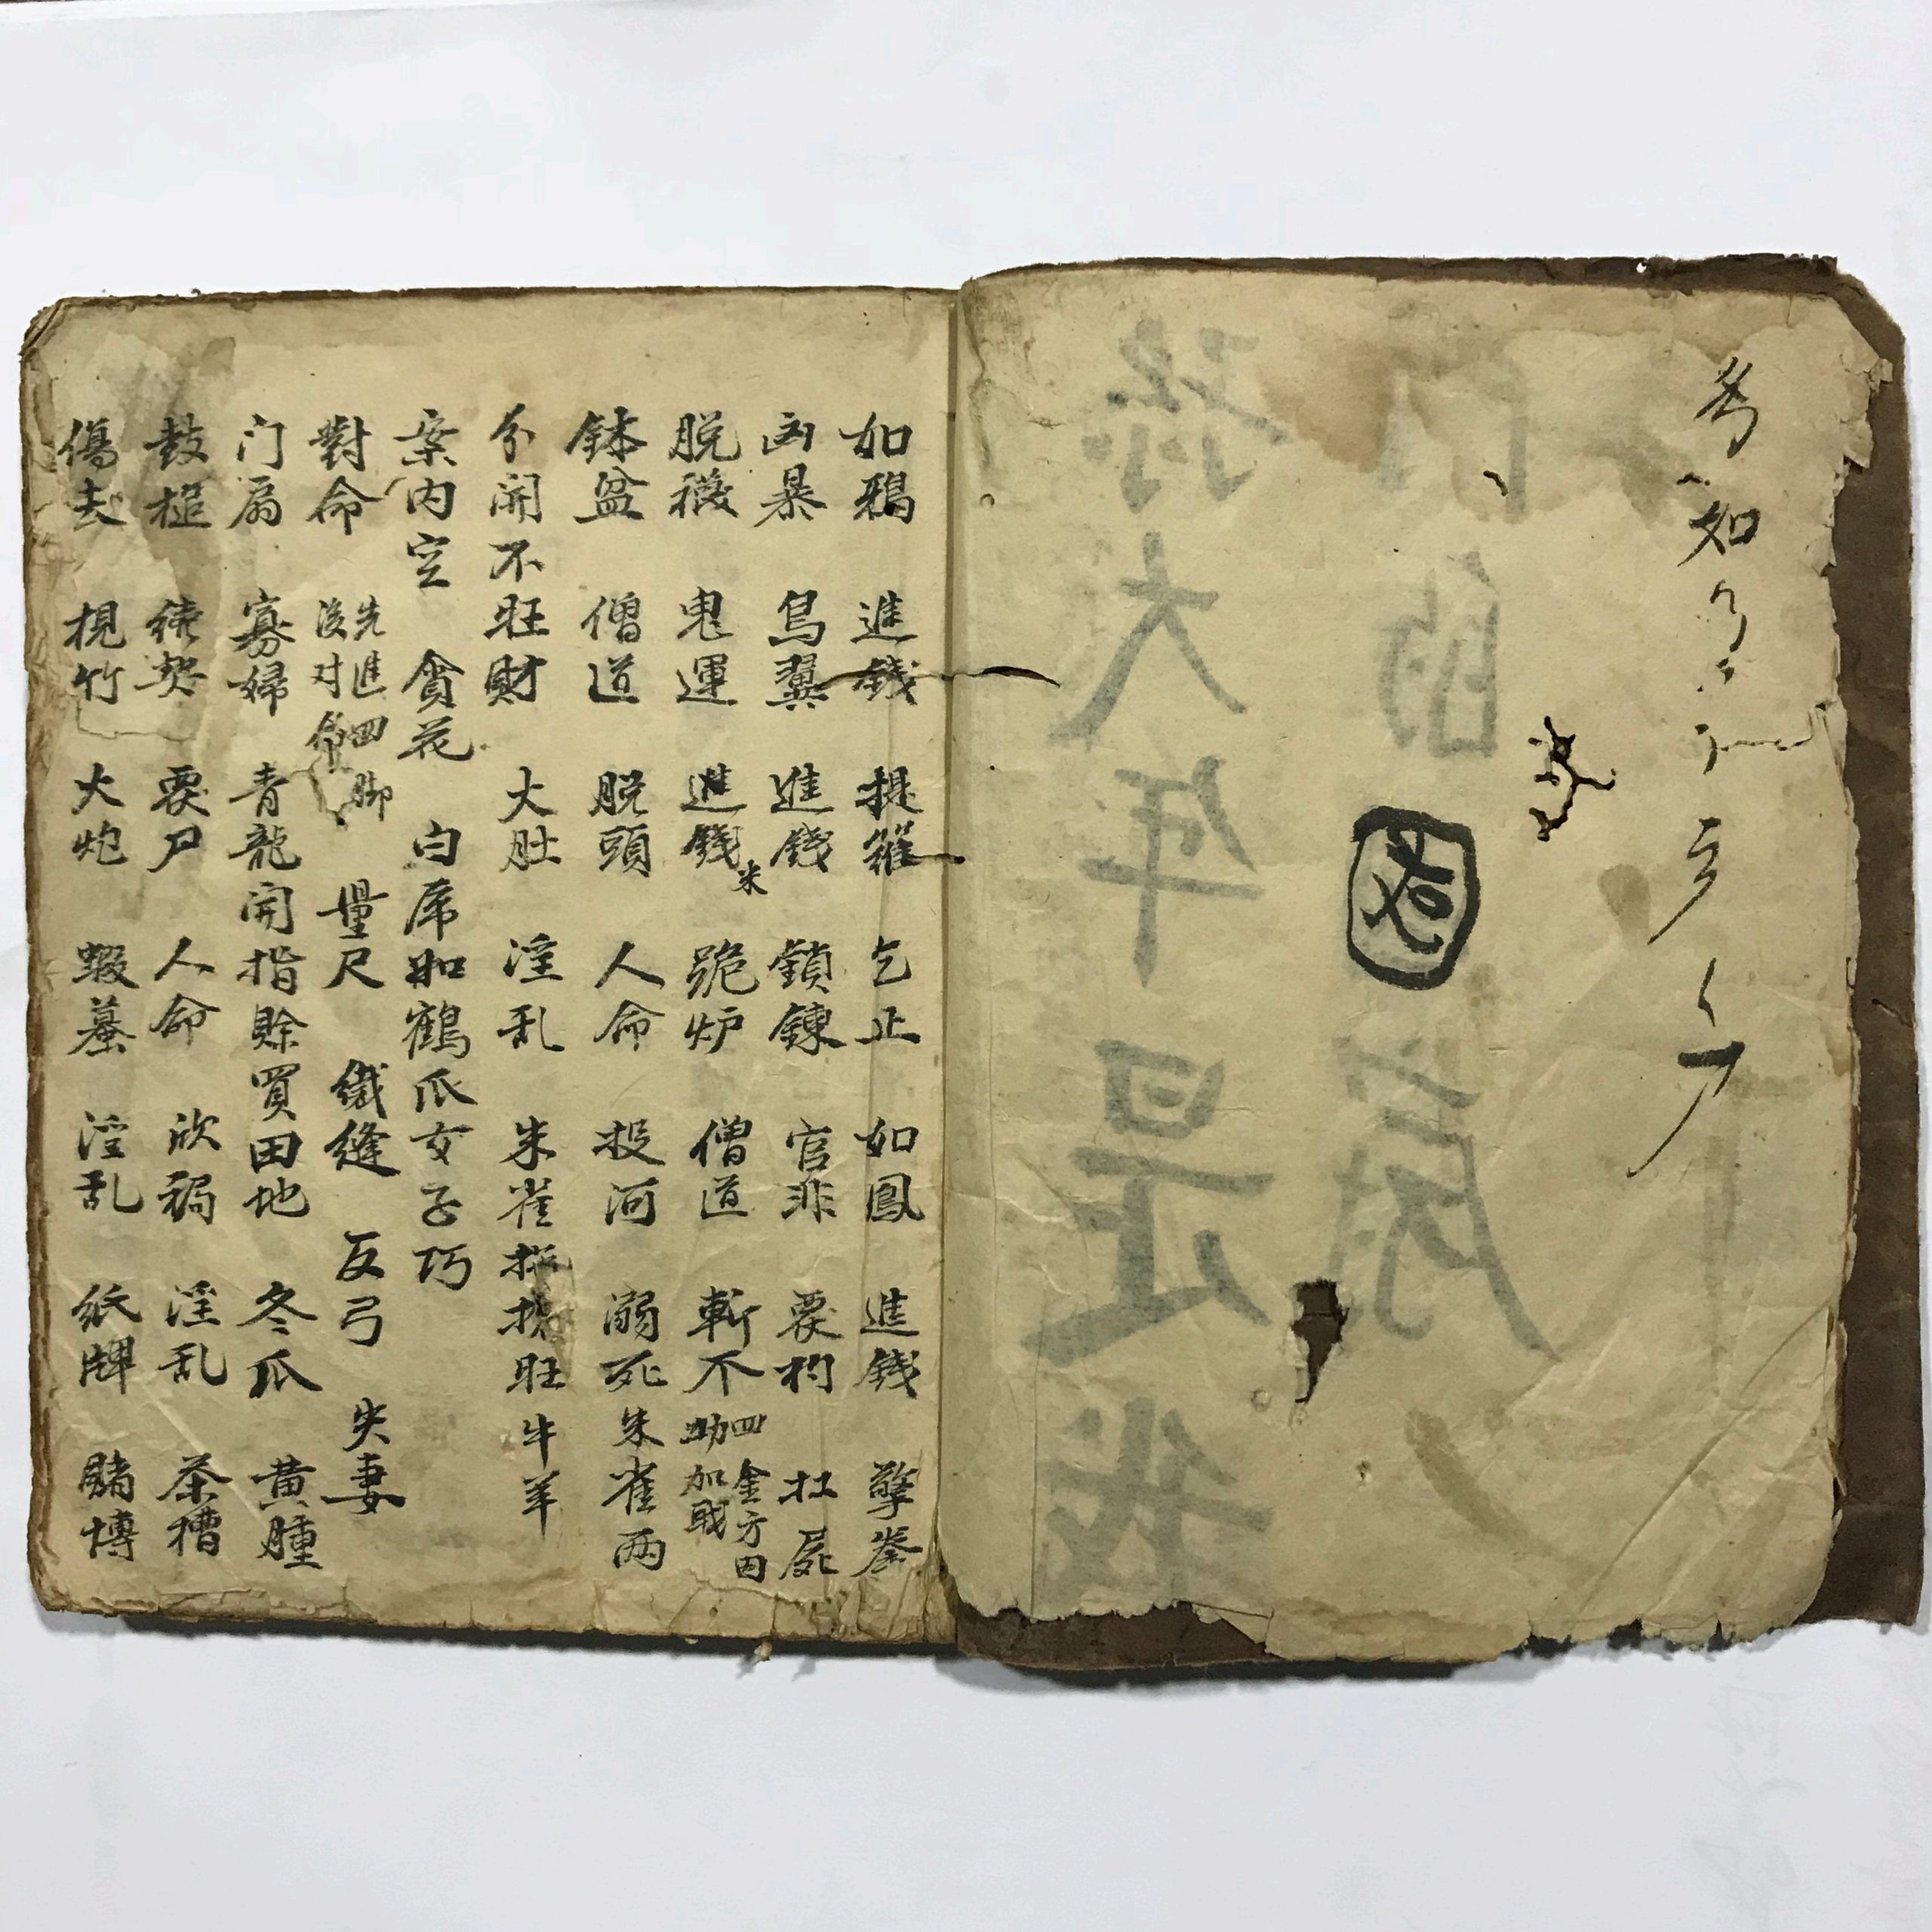 如
如鴉 進錢 提籮 乞止 如鳳 進錢 擎拳
凶暴 鳥翼 進錢 鎖鍊 官非 覆杓 扛屍
脱襪 鬼運 進錢 米 跪炉 僧道 斬不 四金方田 助加戝
鉢盆 僧道 脱頭 人命 投河 溺死 朱雀兩
分開不旺財 大肚 淫乱 朱雀 旺牛羊
案内空 貪花 白虎如鶴爪女子巧
對命 先進四脚 後对命 量尺 鐵縫 反弓 失妻
门扇 寡婦 青龍開指賖買田地 冬瓜 黄腫
鼓槌 覆尸 人命 欣禍 淫乱 茶槽
傷去 梘竹 大炮 蝦蟇 淫乱 紙牌 賭博